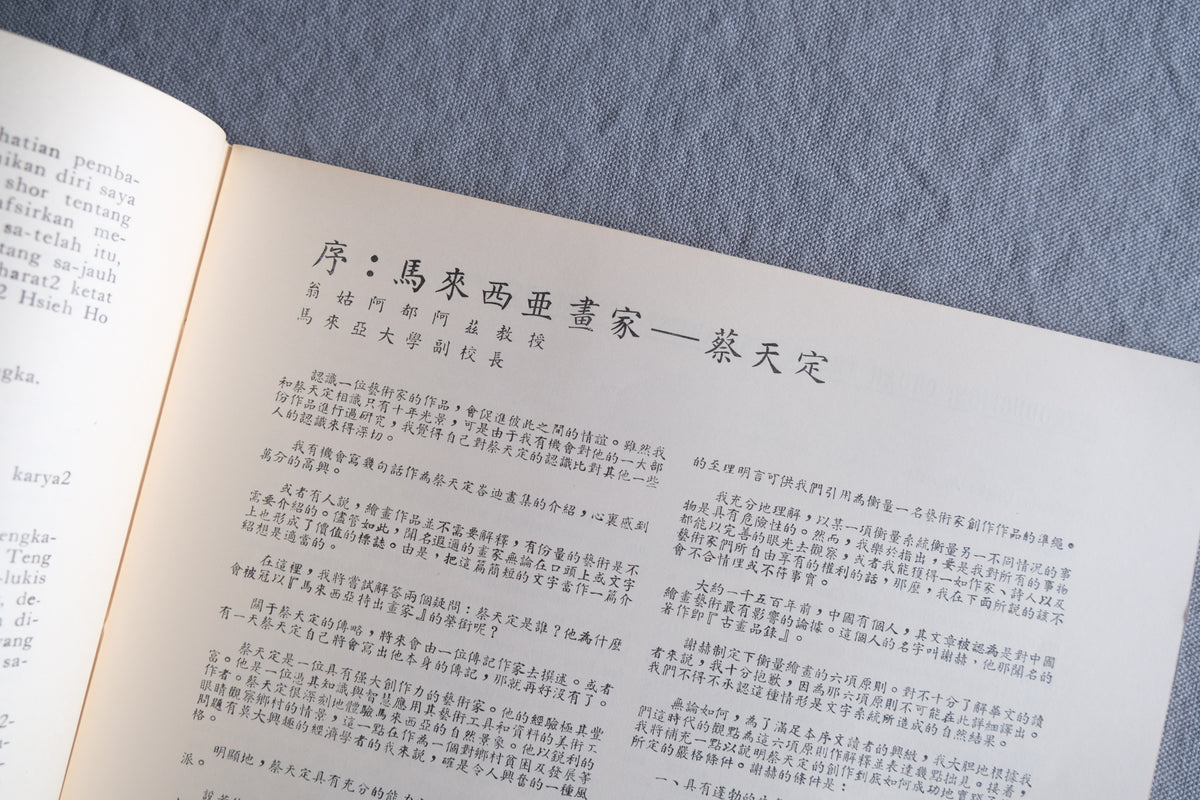 hatian pemba-
ikan diri saya
shor tentang
afsirkan me-
sa-telah itu,
tang sa-jauh
harat2 ketat
2 Hsieh Ho
gka.
karya2
engka-
Teng
-lukis
de-
di-
yang
sa-
2-
序：馬來西亜畫家—蔡天定
翁姑阿都阿茲教授
馬來亞大學副校長
認識一位藝術家的作品，會促進彼此之間的情誼。雖然我
和蔡天定相識只有十年光景，可是由于我有機會對他的一大部
份作品進行過研究，我覺得自己對蔡天定的認識比對其他一些
人的認識來得深切。
我有機會寫幾句話作為蔡天定峇迪畫集的介紹，心裏感到
萬分的高興。
或者有人説，繪畫作品並不需要解釋，有份量的藝術是不
需要介紹的。儘管如此，聞名遐邇的畫家無論在口頭上或文字
上也形成了價值的標誌。由是，把這篇簡短的文字當作一篇介
紹想是適當的。
在這裡，我將嘗試解答兩個疑問：蔡天定是誰？他為什麼
會被冠以『馬來西亞特出畫家』的榮銜呢？
關于蔡天定的傳略，將來會由一位傳記作家去撰述。或者
有一天蔡天定自己將會寫出他本身的傳記，那就再好没有了。
蔡天定是一位具有强大創作力的藝術家。他的經驗極其豐
富。他是一位憑其知識與智慧應用其藝術工具和資料的美術工
作者。蔡天定很深刻地體驗馬來西亞的自然景象。他以鋭利的
眼睛觀察鄉村的情景，這一點在作為一個對鄉村貧困及發展等
問題有莫大興趣的經濟學者的我來説，確是令人興奮的一種風
格。
明顯地，蔡天定具有充分的能力
派。
的至理明言可供我們引用為衡量一名藝術家創作作品的準繩。
我充分地理解，以某一項衡量系統衡量另一不同情況的事
物是具有危險性的。然而，我樂於指出，要是我對所有的事物
都能以完善的眼光去觀察，或者我能獲得一如作家、詩人以及
藝術家們所自由享有的權利的話，那麼，我在下面所説的該不
會不合情理或不符事實。
大約一千五百年前，中國有個人，其文章被認為是對中國
繪畫藝術最有影響的論據。這個人的名字叫謝赫，他那聞名的
著作即『古畫品錄』。
謝赫制定下衡量繪畫的六項原則。對不十分了解華文的讀
者來説，我十分抱歉，因為那六項原則不可能在此詳細譯出。
我們不得不承認這種情形是文字系統所造成的自然結果。
無論如何，為了滿足本序文讀者的興緻，我大胆地根據我
們這時代的觀點為這六項原則作解釋並表達幾點拙見。接着，
我將補充一點以説明蔡天定的創作到底如何成功地實踐
所定的嚴格條件。謝赫的條件是：
一、具有蓬勃的